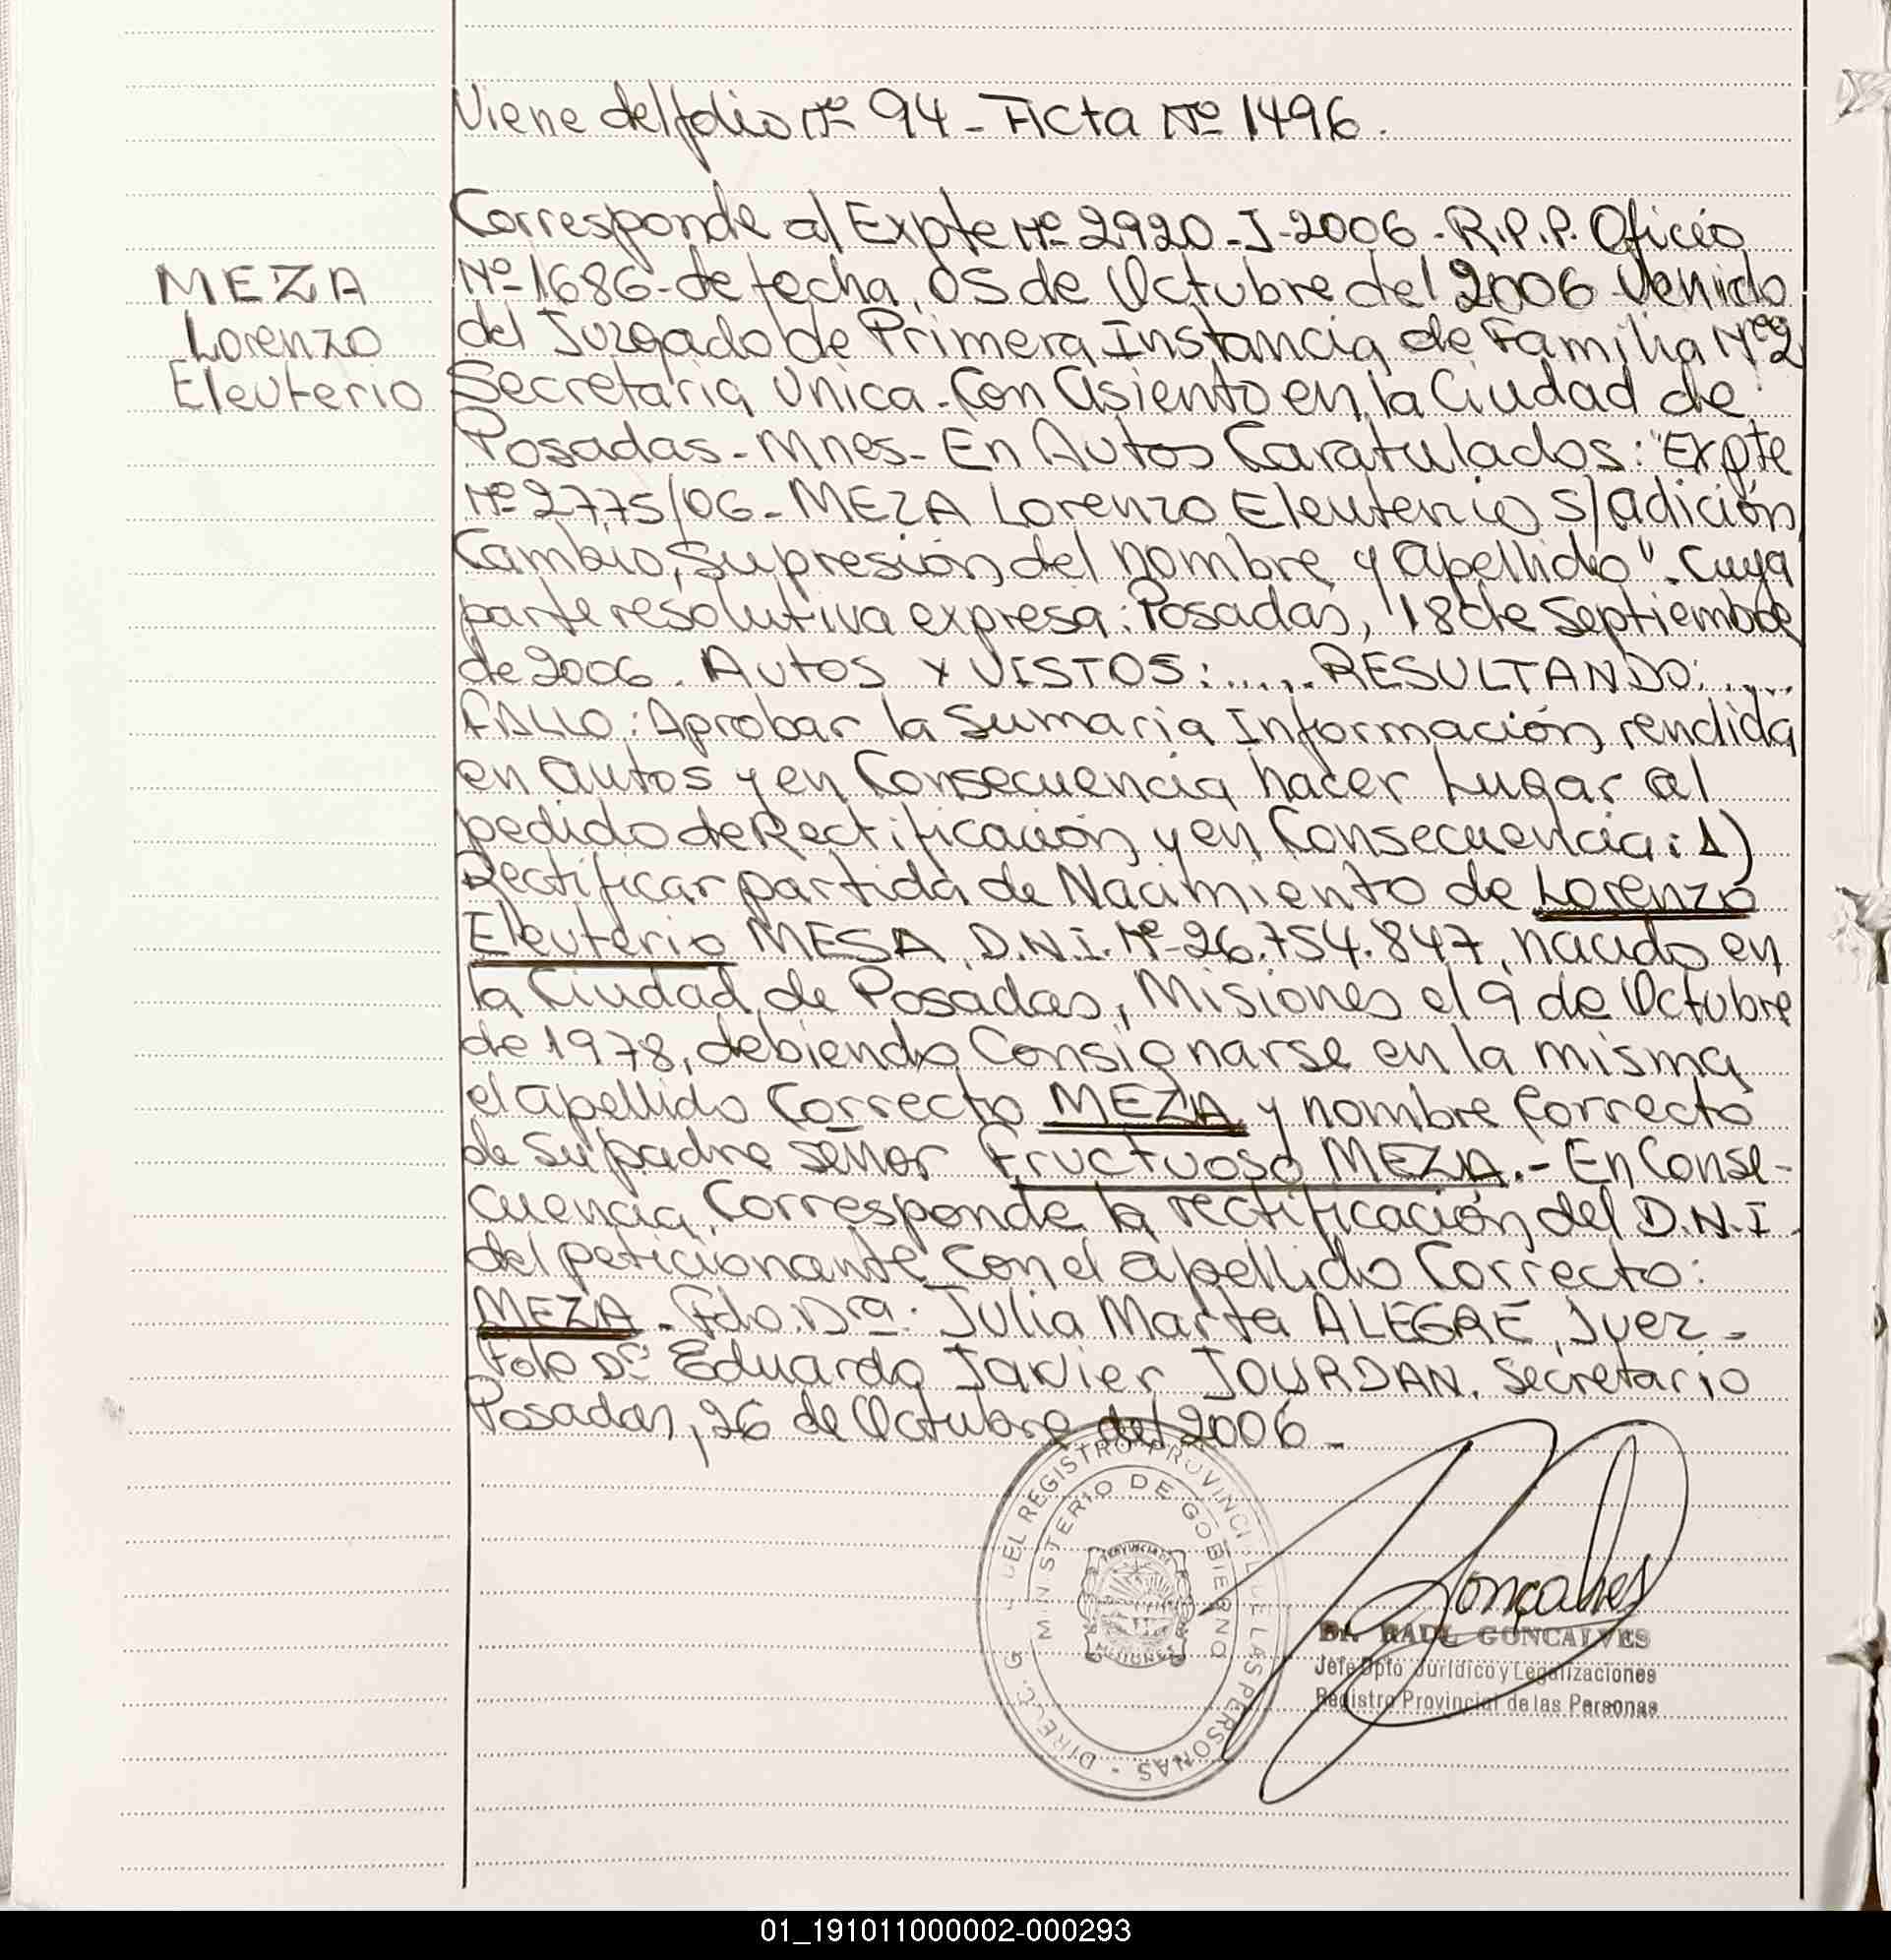 Viene del folio Nº 94 - Acta Nº 1496.
Corresponde al Expte Nº 2920-I-2006-R.P.P. Oficio
Nº 1686-de fecha, 05 de Octubre del 2006 Venido
del Juzgado de Primera Instancia de Familia Nº 2
Secretaria Unica - Con Asiento en la Ciudad de
Posadas - Mnes - En Autos Caratulados: "Expte
Nº 2775/06 - MEZA Lorenzo Eleuterio s/ adición
Cambio, Supresión del nombre y apellido". Cuya
parte resolutiva expresa: Posadas, 18 de Septiembre
de 2006. Autos y VISTOS: ..... RESULTANDO: ....
FALLO: Aprobar la Sumaria Información rendida
en autos y en Consecuencia hacer Lugar al
pedido de Rectificación y en Consecuencia: 1)
Rectificar partida de Nacimiento de Lorenzo
Eleuterio MESA, D.N.I. Nº 26.754.847, nacido en
la Ciudad de Posadas, Misiones el 9 de Octubre
de 1978, debiendo Consignarse en la misma
el apellido Correcto MEZA y nombre Correcto
de su padre señor Fructuoso MEZA.- En Conse-
cuencia, Corresponde la rectificación del D.N.I.
del peticionante Con el apellido Correcto:
MEZA - Fdo. Dra. Julia Marta ALEGRE, Juez -
Fdo Dr. Eduardo Javier JOURDAN, Secretario
Posadas, 26 de Octubre del 2006 -
MEZA
Lorenzo
Eleuterio
DIRECC. G DEL REGISTRO PROVINCIAL DE LAS PERSONAS -
MINISTERIO DE GOBIERNO
PROVINCIA DE
MISIONES
Goncalves
Dr. RAUL GONCALVES
Jefe Dpto Jurídico y Legalizaciones
Registro Provincial de las Personas
01_191011000002-000293